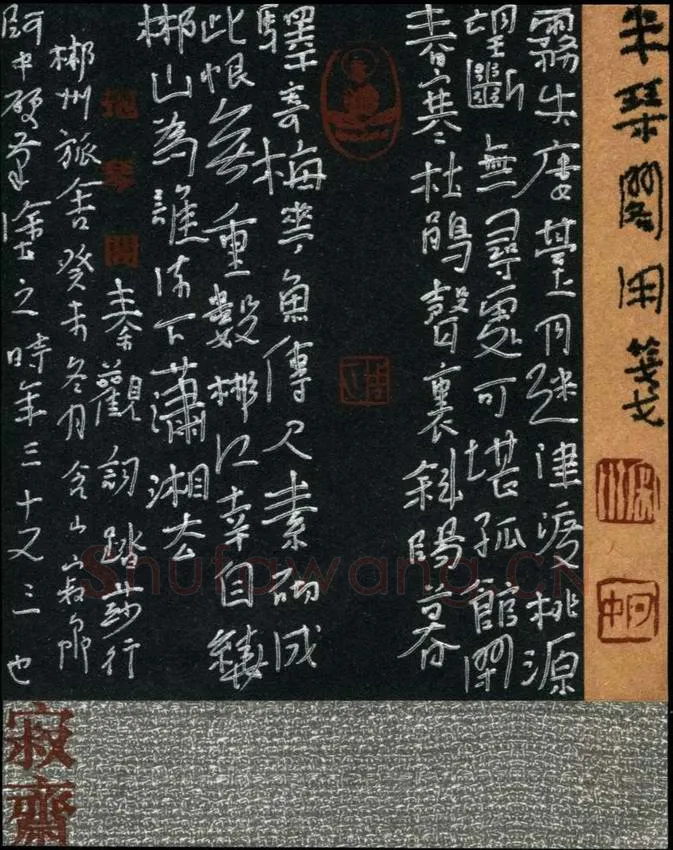 琴閣用箋
霧失樓臺月迷津渡桃源
望斷無尋處可堪孤館閉
春寒杜鵑聲裏斜陽暮
驛寄梅花魚傳尺素砌成
此恨無重數郴江幸自繞
郴山為誰流下瀟湘去
秦觀詞踏莎行
郴州旅舍癸未冬月含山寂
阿中硬筆塗之時年三十又三也
琴閣
阿中
寂齋
Shufawang.CN